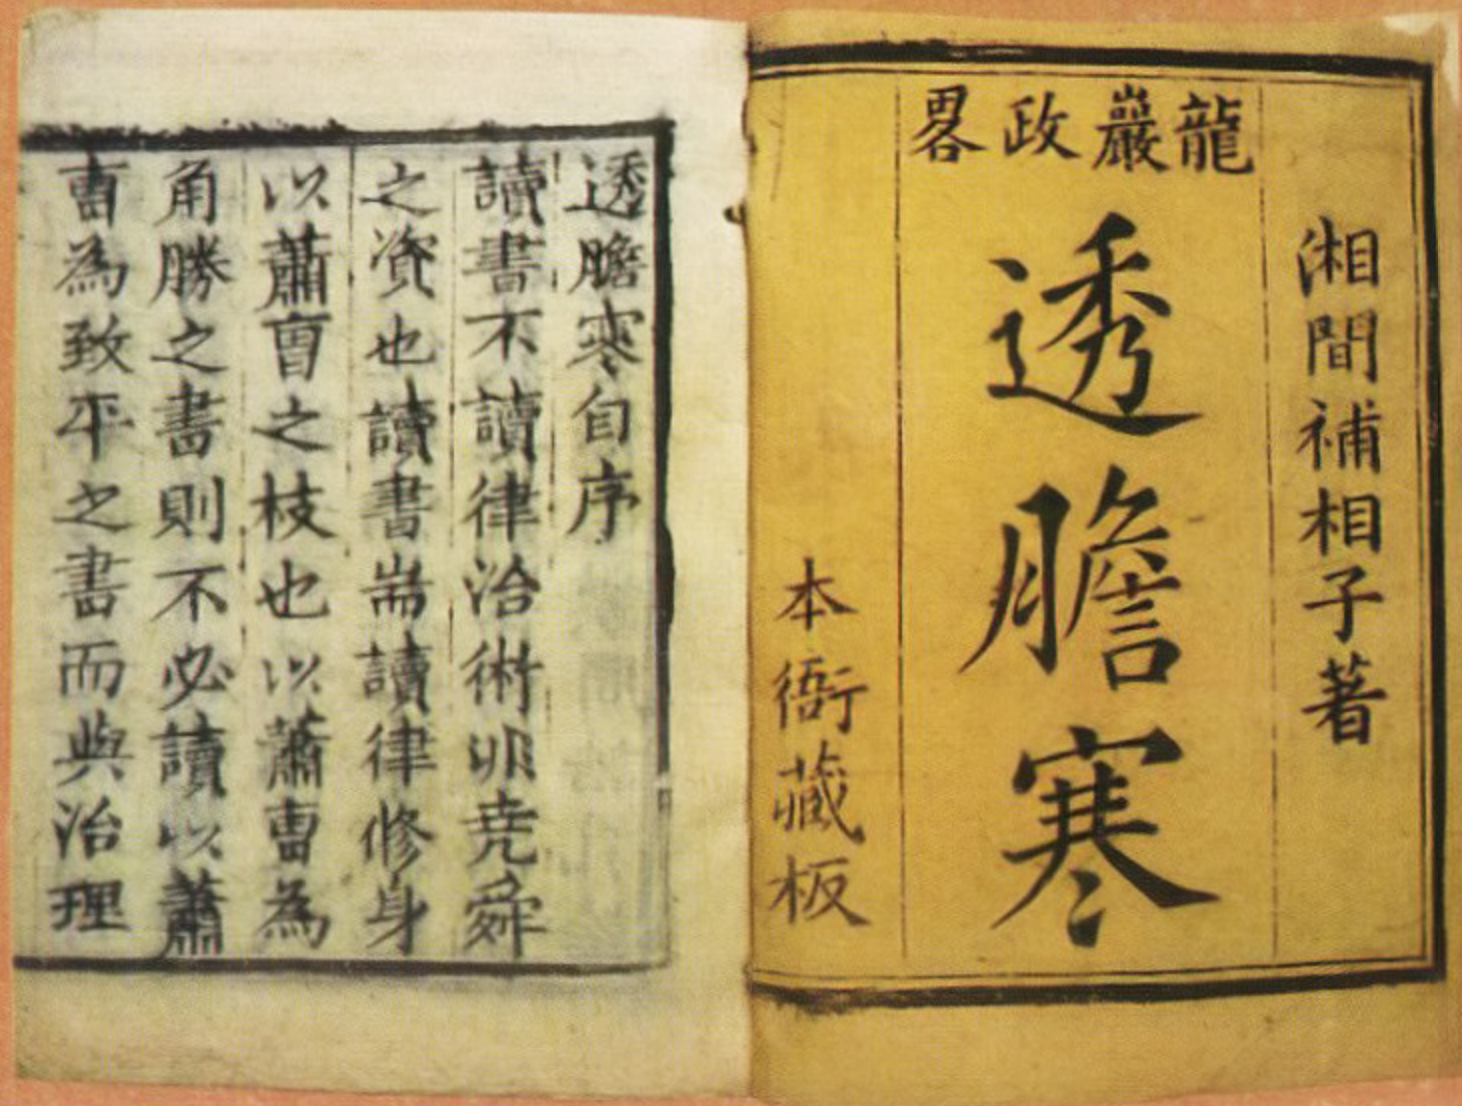 龍巖政畧
湘間補相子著
透膽寒
本衙藏板
透膽寒自序
讀書不讀律治術非堯舜
之資也讀書耑讀律修身
以蕭曺之枝也以蕭曺為
角勝之書則不必讀以蕭
曺為致平之書而與治理